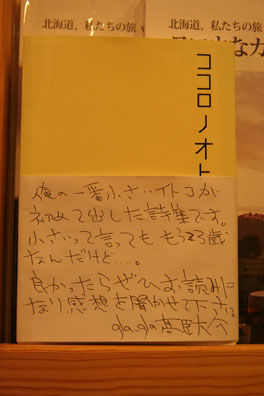 北海道、私たちの旅
北海道、私たちの旅
ココロノオト
俺の一番小さいイトコが
初めて出した詩集です。
小さいって言っても もう23歳
なんだけど…。
良かったらぜひお読みに
なり感想を聞かせて下さい。
gla_gla 高臣大介